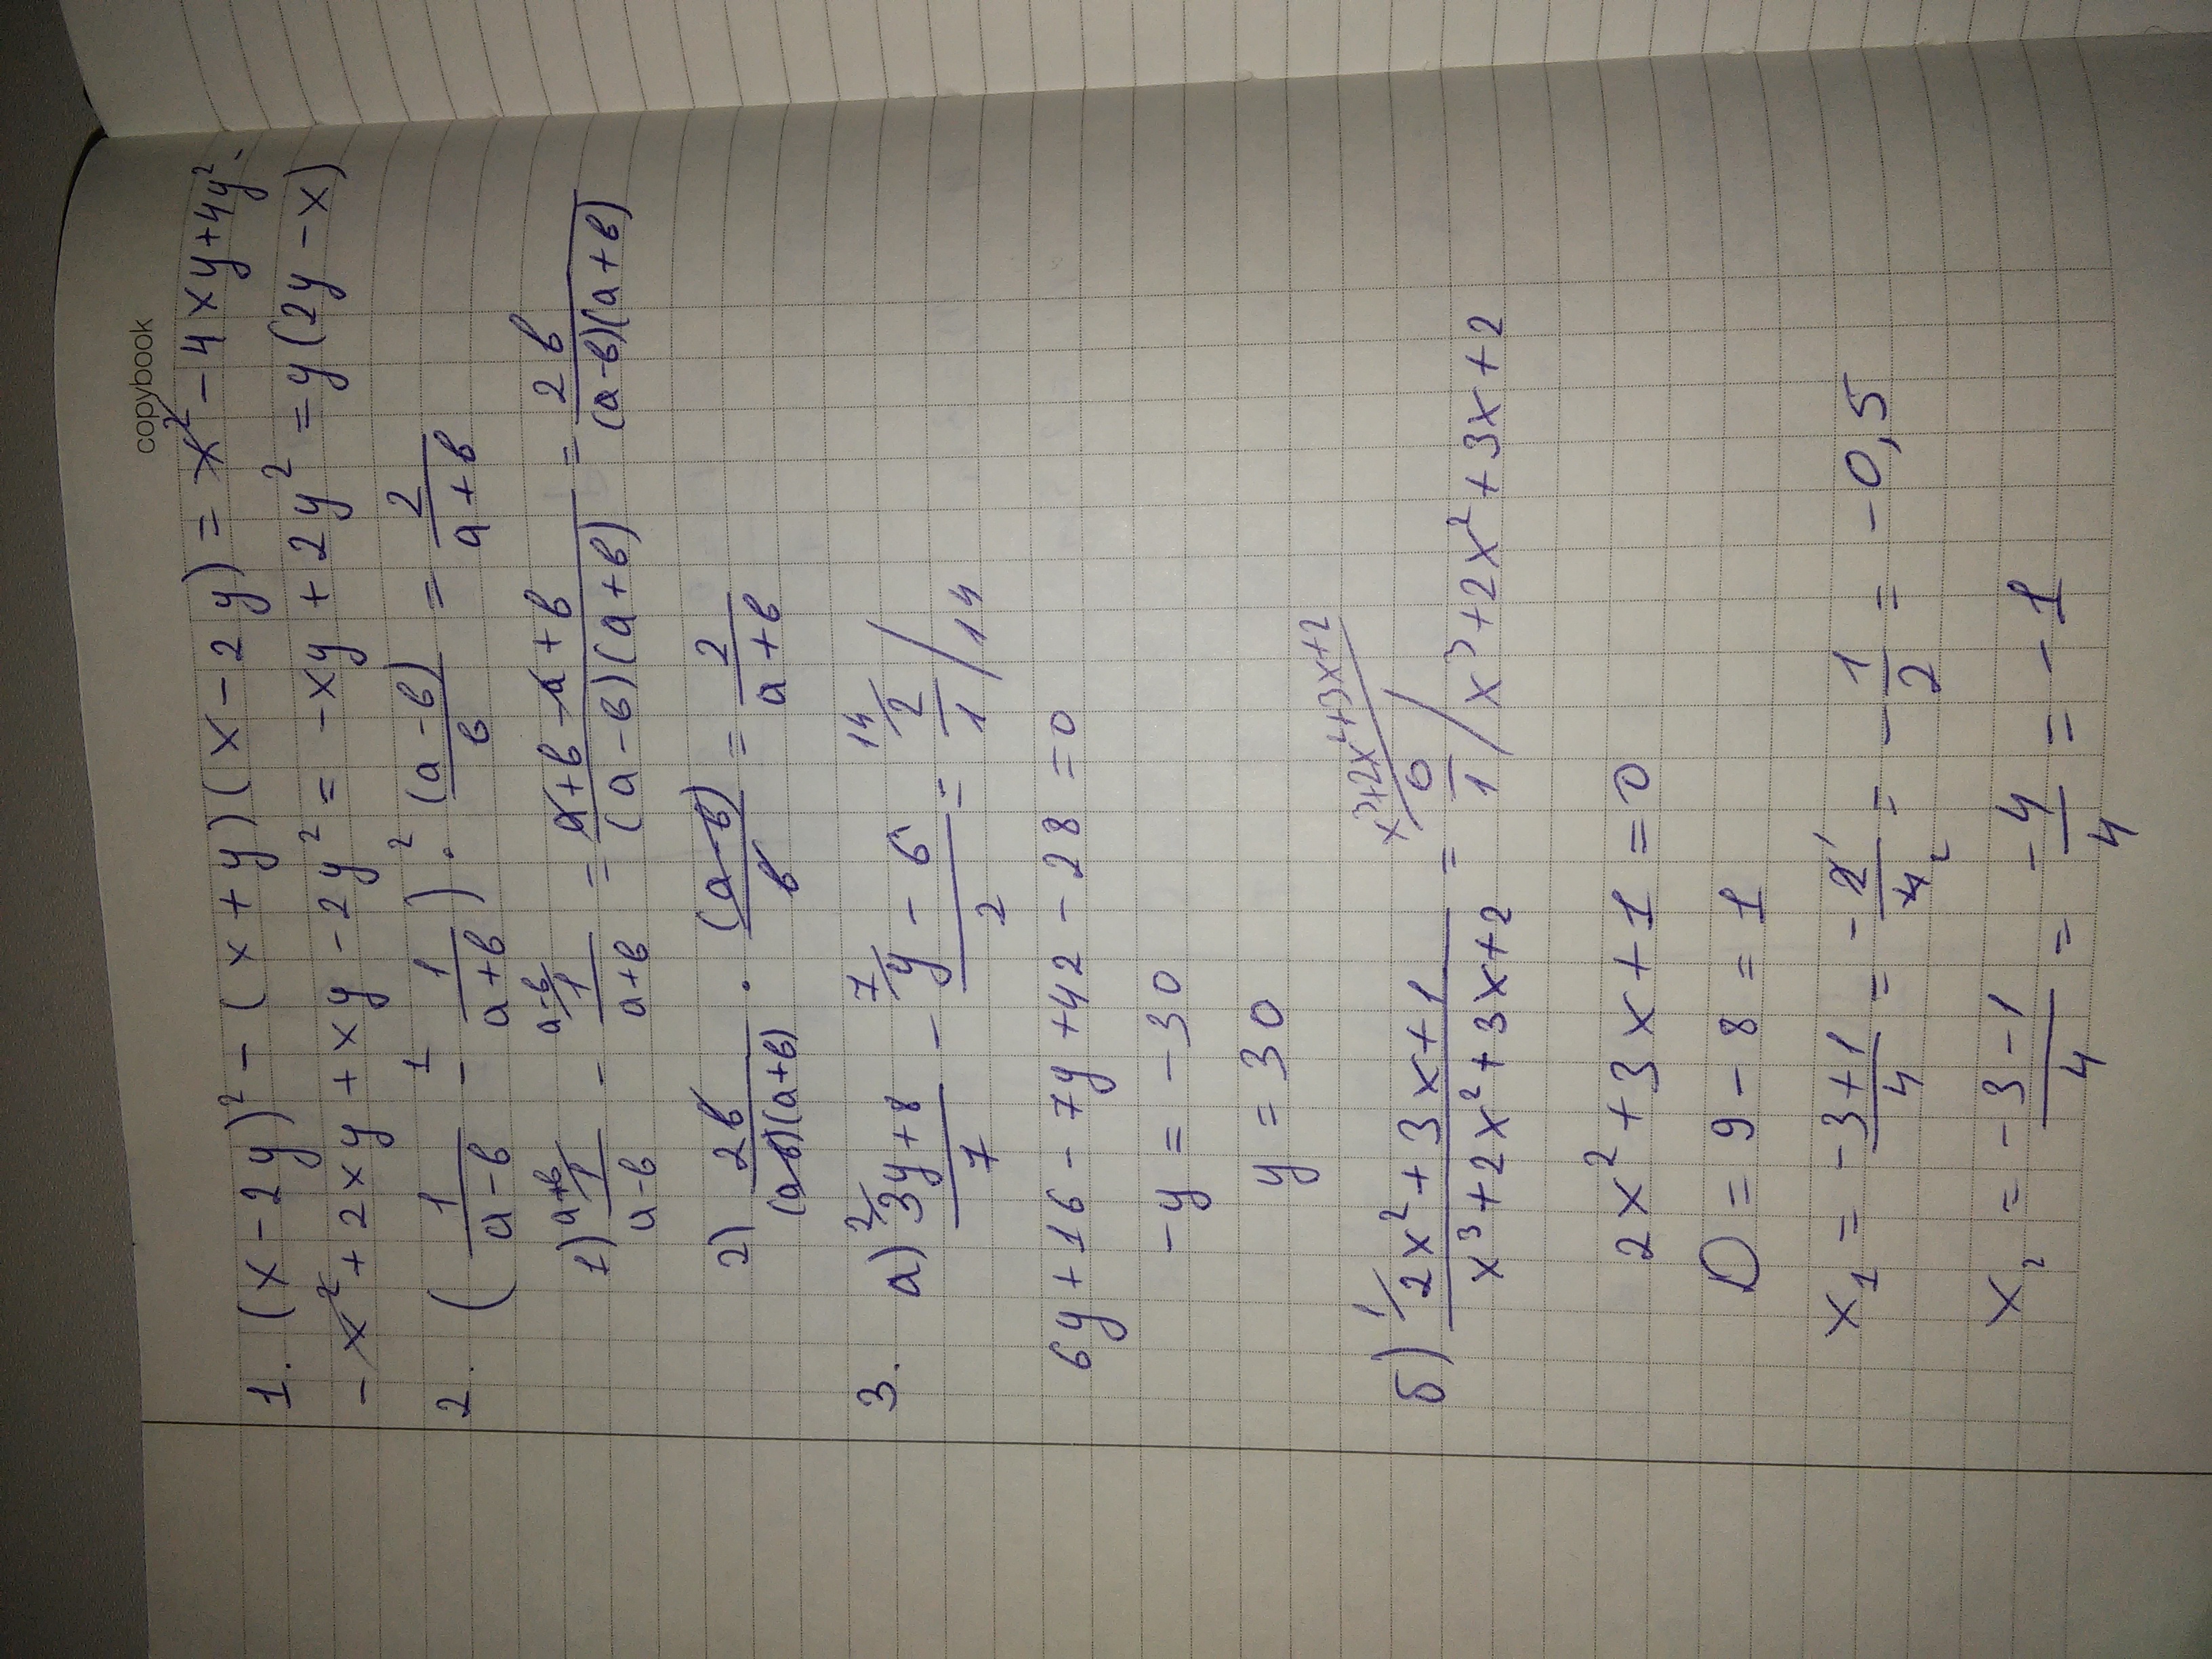 copybook
1. (x-2y)² - (x+y)(x-2y) = x² - 4xy + 4y² -
- x² + 2xy + xy - 2y² = -xy + 2y² = y(2y - x)
2. (1/(a-в) - 1/(a+в)) · (a-в)/в = 2/(a+в)
1) 1/(a-в) - 1/(a+в) = (a+в-a+в)/((a-в)(a+в)) = 2в/((a-в)(a+в))
2) 2в/((a-в)(a+в)) · (a-в)/в = 2/(a+в)
3. а) (3y+8)/7 - (y-6)/2 = 2/1 /14
6y + 16 - 7y + 42 - 28 = 0
-y = -30
y = 30
б) (2x²+3x+1)/(x³+2x²+3x+2) = 0/1 / x³+2x²+3x+2
2x² + 3x + 1 = 0
D = 9 - 8 = 1
x₁ = (-3+1)/4 = -2/4 = -1/2 = -0,5
x₂ = (-3-1)/4 = -4/4 = -1